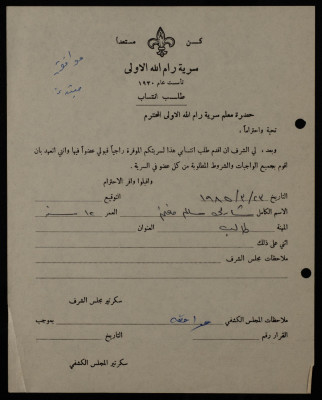 كن مستعداً
موافق
سرية رام الله الاولى
تأسست عام ١٩٣٠
طلب انتساب
حضرة معلم سرية رام الله الاولى المحترم
تحية واحتراماً ،
وبعد ، لي الشرف ان اقدم طلب انتسابي هذا لسريتكم الموقرة راجياً قبولي عضواً فيها وانني اتعهد بان
اقوم بجميع الواجبات والشروط المطلوبة من كل عضو في السرية .
واقبلوا وافر الاحترام
التاريخ ١٩٨٥/٢/٢٧ التوقيع
الاسم الكامل سالم العمر ١٢ سنة
المهنة طالب العنوان
اثني على ذلك
ملاحظات مجلس الشرف
سكرتير مجلس الشرف
ملاحظات المجلس الكشفي موافقه بموجب
القرار رقم التاريخ
سكرتير المجلس الكشفي